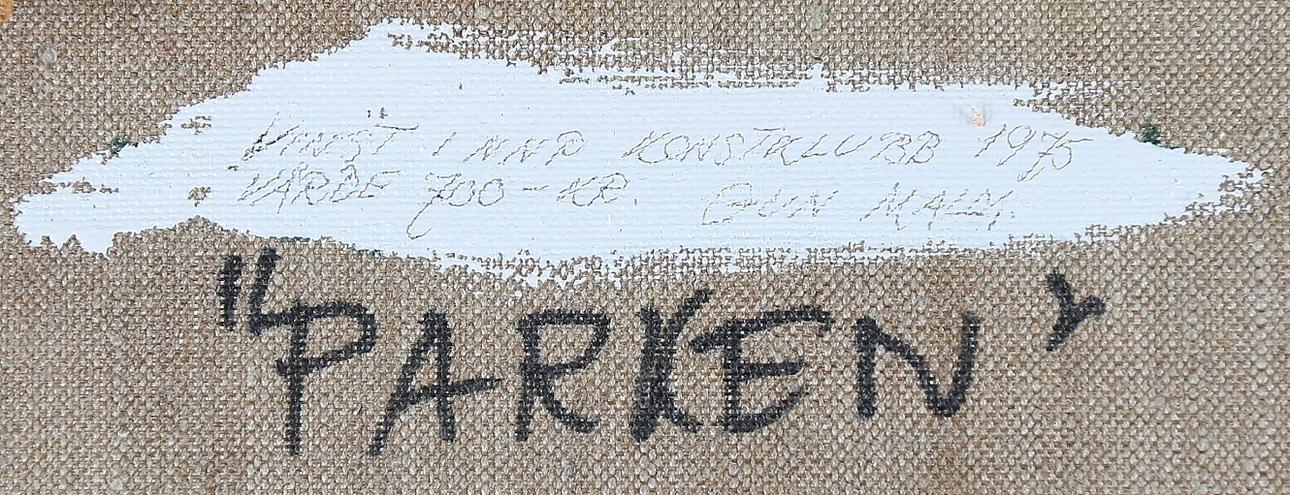 VINST I NND KONSTKLUBB 1975
VÄRDE 700-KR GUN
"PARKEN"